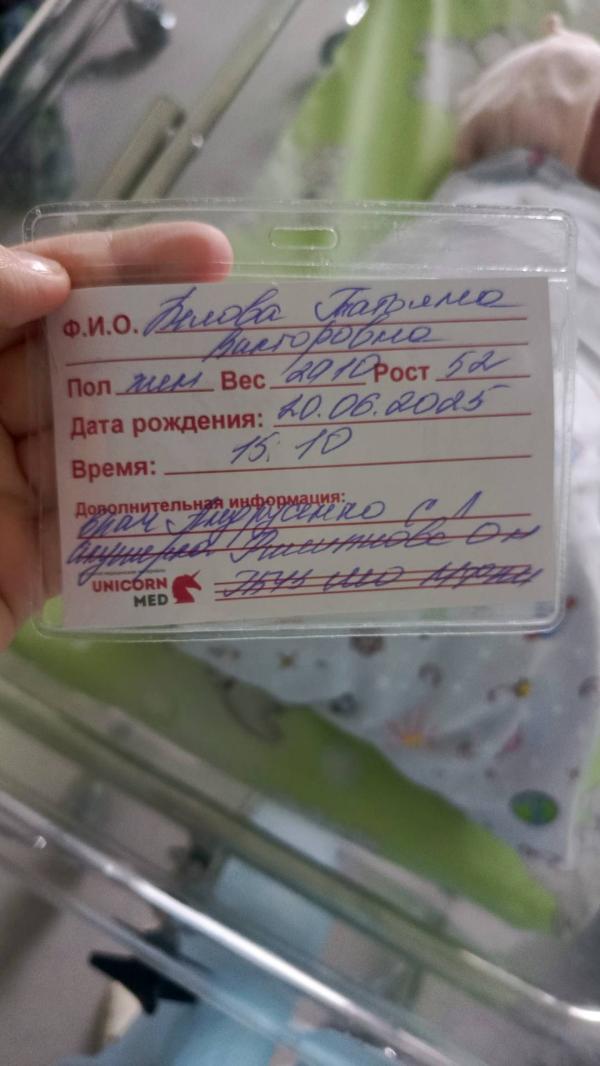 Ф.И.О. Белова Татьяна
Викторовна
Пол жен Вес 2910 Рост 52
Дата рождения: 20.06.2025
Время: 15 10
Дополнительная информация:
врач Андрусенко С Л
Акушерка
UNICORN
MED